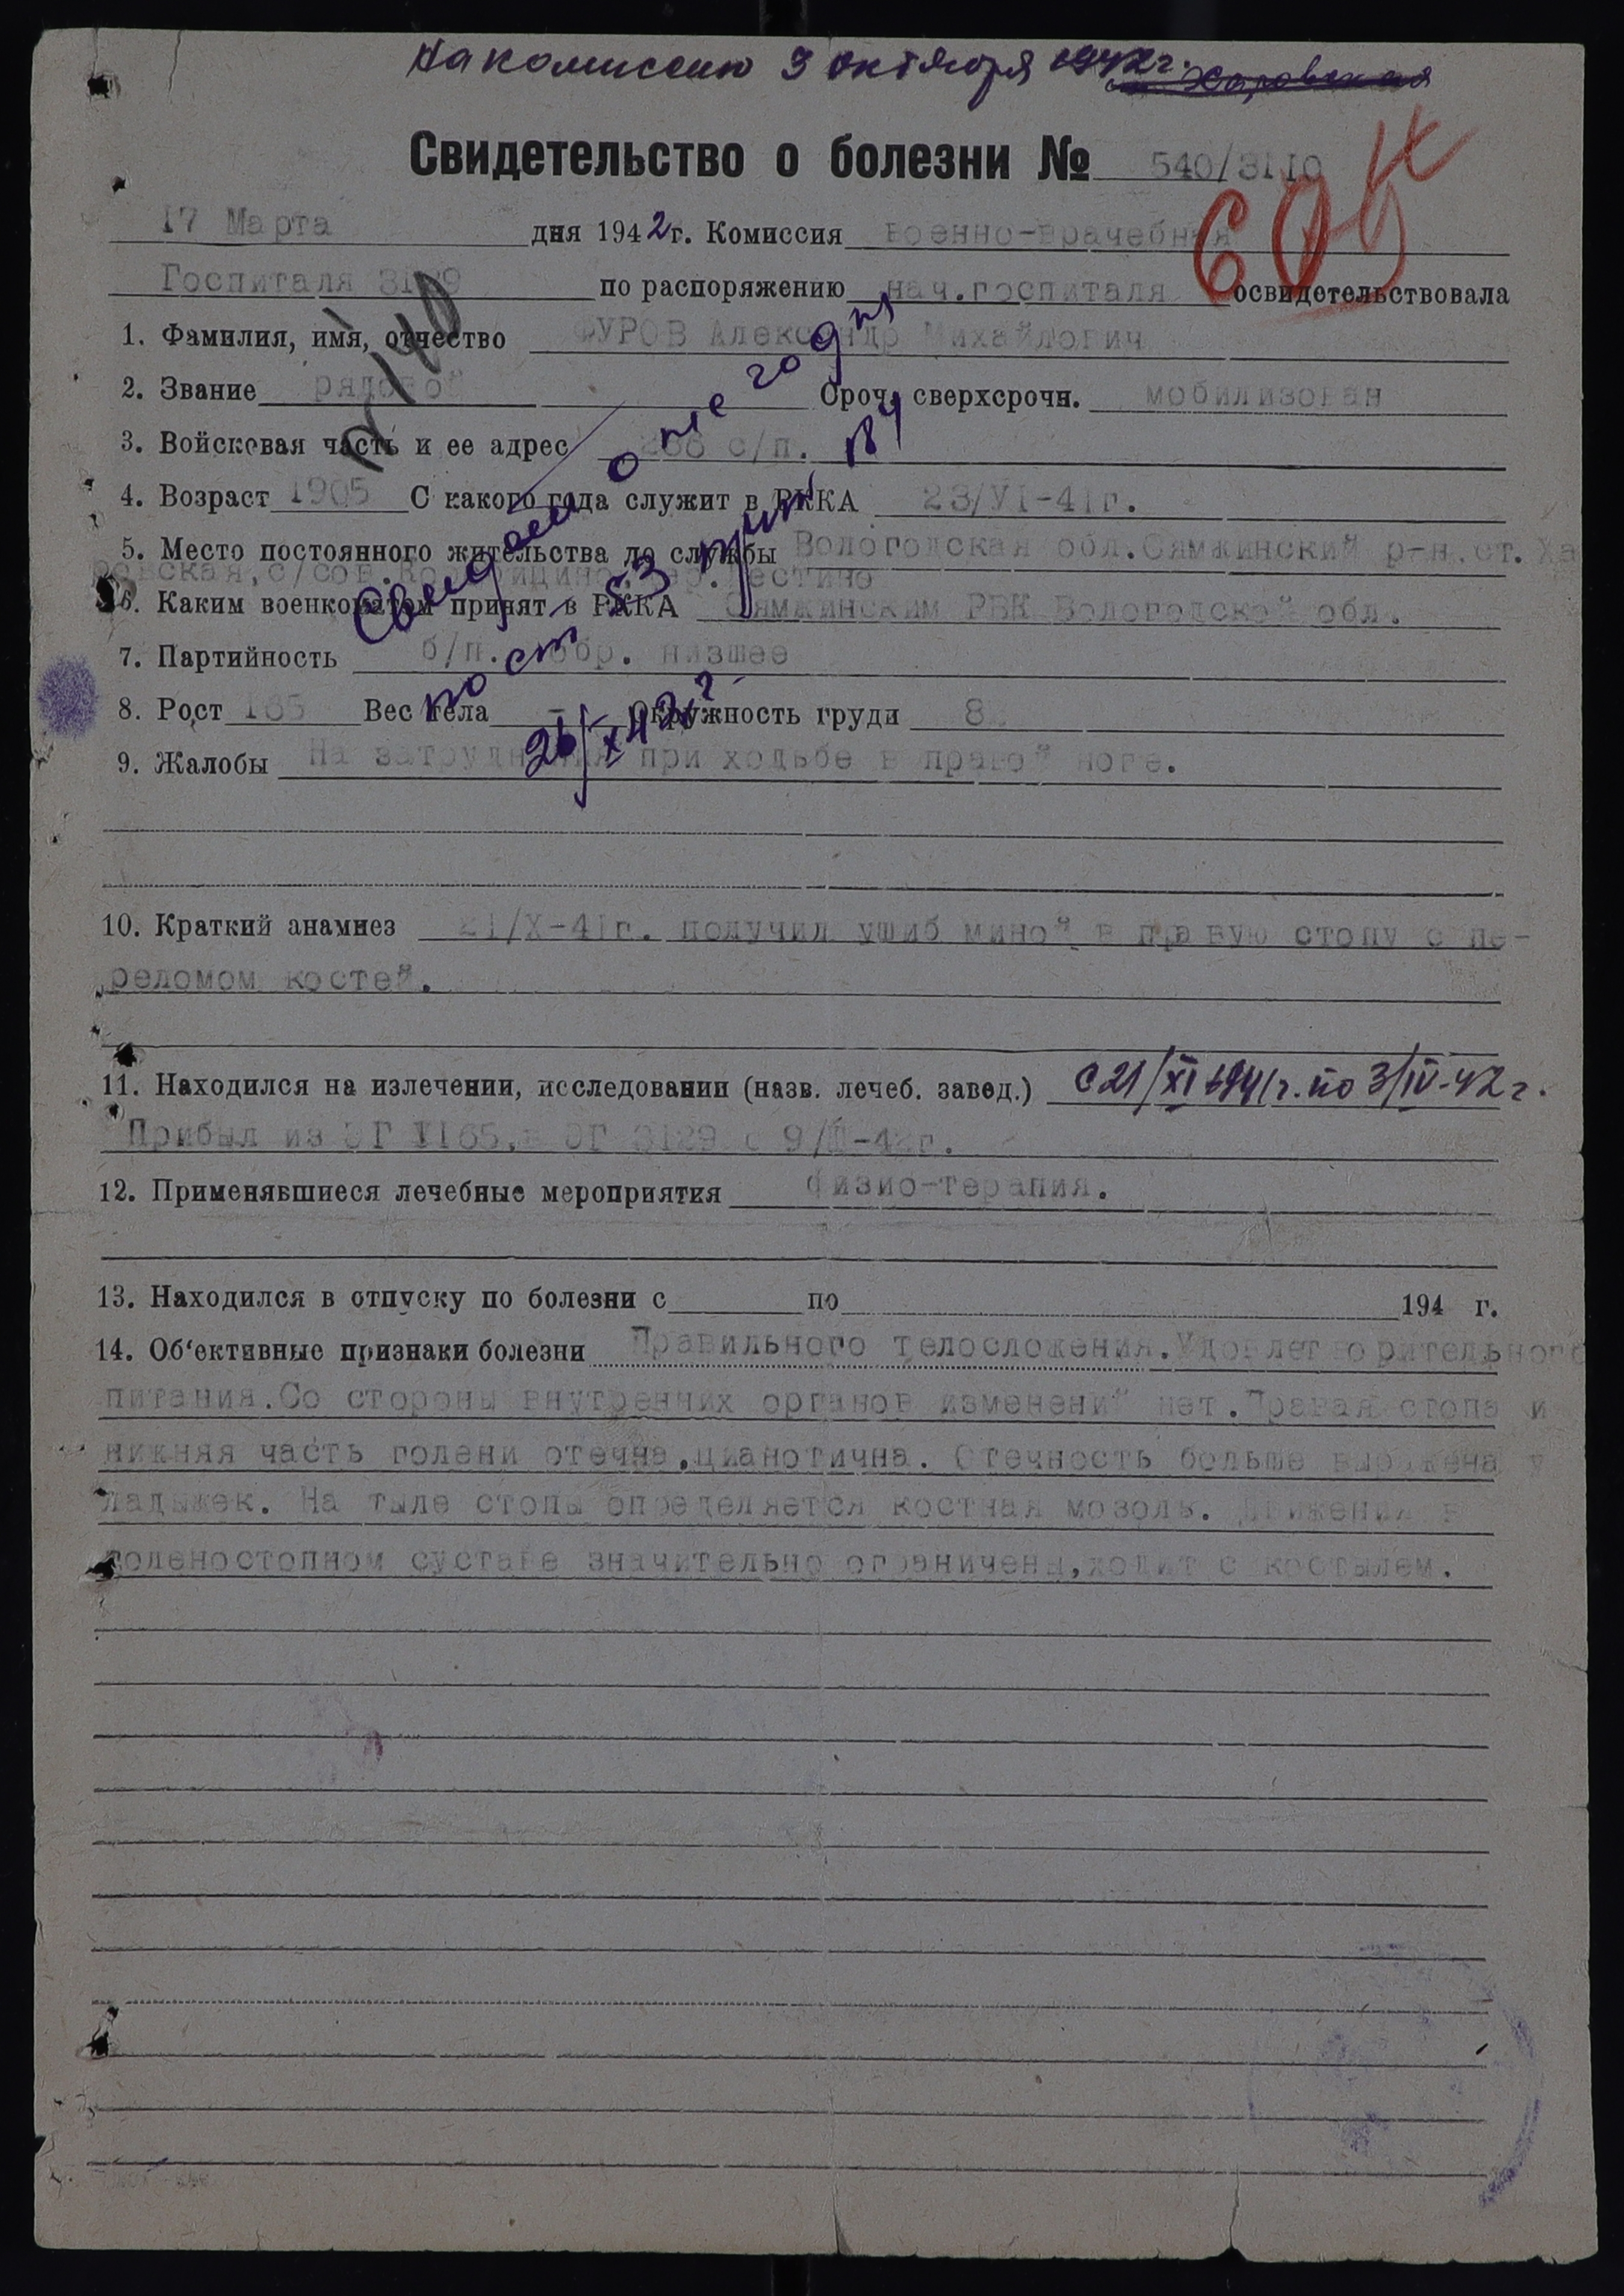 На комиссию 3 октября 1942 г.
Свидетельство о болезни № 540/3110
17 Марта дня 1942 г. Комиссия военно-врачебная
Госпиталя по распоряжению нач.госпиталя освидетельствовала
1. Фамилия, имя, отчество ФУРОВ Александр Михайлович
2. Звание рядовой Сроч. сверхсрочн. мобилизован
3. Войсковая часть и ее адрес с/п.
4. Возраст 1905 С какого года служит в РККА 23/VI-41г.
5. Место постоянного жительства до службы Вологодская обл.Сямжинский р-н.ст. Ха
ровская,с/сов.
6. Каким военкоматом принят в РККА Сямжинским РВК Вологодской обл.
7. Партийность б/п. обр. низшее
8. Рост 165 Вес тела - Окружность груди
9. Жалобы На затруднения при ходьбе в правой ноге.
Свидет о не годн
пост 53 прик
26/X 42 г.
10. Краткий анамнез 21/X-41г. получил ушиб миной в правую стопу с пе-
реломом костей.
11. Находился на излечении, исследовании (назв. лечеб. завед.) с 21/XI 1941г. по 3/IV-42 г.
Прибыл из ЭГ 1165, в ЭГ 3129 с 9/II-42г.
12. Применявшиеся лечебные мероприятия физио-терапия.
13. Находился в отпуску по болезни с по 194 г.
14. Об‘ективные признаки болезни Правильного телосложения.Удовлетворительного
питания.Со стороны внутренних органов изменений нет.Правая стопа и
нижняя часть голени отечна,цианотична. Отечность больше выражена у
ладыжек. На тыле стопы определяется костная мозоль. Движения в
голеностопном суставе значительно ограничены,ходит с костылем.